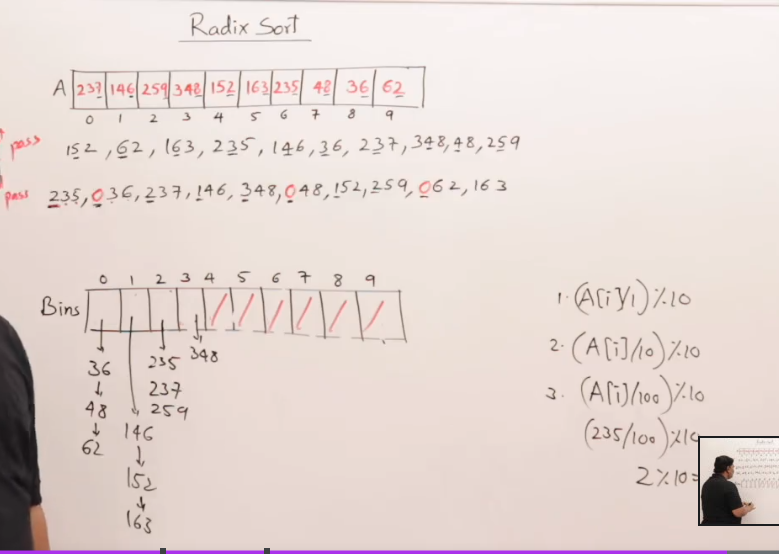 Radix Sort
A 237 146 259 348 152 163 235 48 36 62
0 1 2 3 4 5 6 7 8 9
pass 152, 62, 163, 235, 146, 36, 237, 348, 48, 259
pass 235, 036, 237, 146, 348, 048, 152, 259, 062, 163
0 1 2 3 4 5 6 7 8 9
Bins
36
48
62
146
152
163
235
237
259
348
1. (A[i]/1) % 10
2. (A[i]/10) % 10
3. (A[i]/100) % 10
(235/100) % 10
2 % 10 =